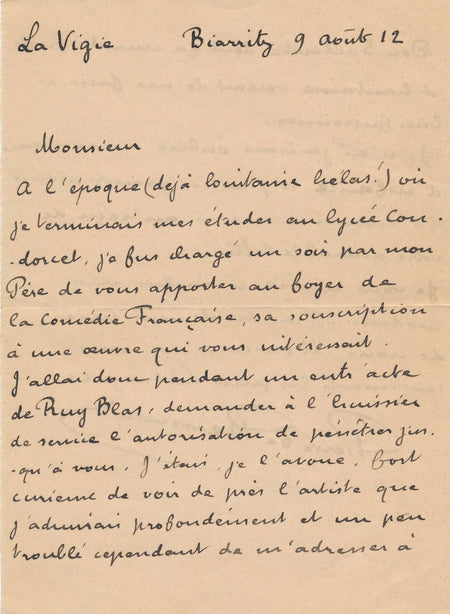 La Vigie Biarritz 9 août 12
Monsieur
A l'époque (dejà lointaine helas!) où
je terminais mes études au lycée Con-
-dorcet, je fus chargé un soir par mon
Père de vous apporter au foyer de
la Comédie Française, sa souscription
à une œuvre qui vous intéressait.
J'allai donc pendant un entr'acte
de Ruy Blas, demander à l'huissier
de service l'autorisation de pénétrer jus-
-qu'à vous. J'étais, je l'avoue, fort
curieux de voir de près l'artiste que
j'admirais profondément et un peu
troublé cependant de m'adresser à